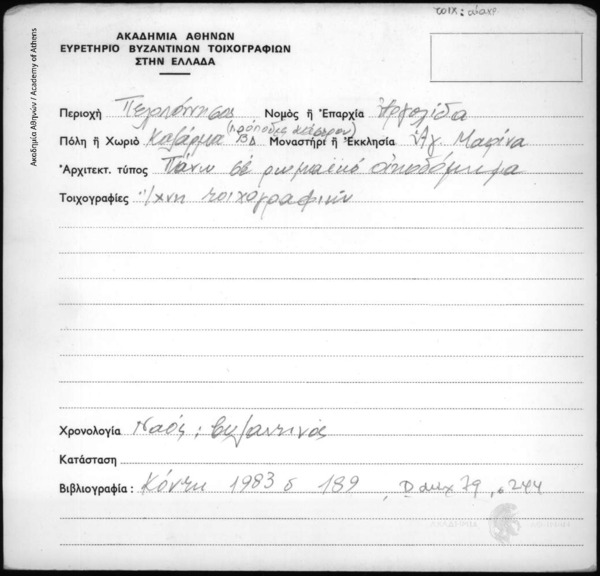 τοιχ: αναχρ
ΑΚΑΔΗΜΙΑ ΑΘΗΝΩΝ
ΕΥΡΕΤΗΡΙΟ ΒΥΖΑΝΤΙΝΩΝ ΤΟΙΧΟΓΡΑΦΙΩΝ
ΣΤΗΝ ΕΛΛΑΔΑ
Ακαδημία Αθηνών / Academy of Athens
Περιοχή Πελοπόννησος Νομός ἤ Ἐπαρχία Ἀργολίδα
Πόλη ἤ Χωριό Καζάρμα (πρόποδες κάστρου) ΒΔ Μοναστήρι ἤ Ἐκκλησία Ἁγ. Μαρίνα
Ἀρχιτεκτ. τύπος Πάνω σέ ρωμαϊκό οἰκοδόμημα
Τοιχογραφίες Ἴχνη τοιχογραφιῶν
Χρονολογία Ναός: βυζαντινός
Κατάσταση
Βιβλιογραφία: Κόντη 1983 σ 189, 79, σ 244
ΑΚΑΔΗΜΙΑ ΑΘΗΝΩΝ